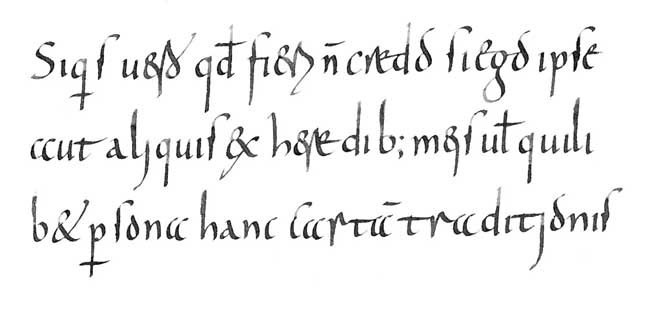 Siꝗs uero qđ fieri n̄ credo si ego ipse
aut aliquis ex heredib; meis uł quili
b& ꝑsona hanc cartā traditionis